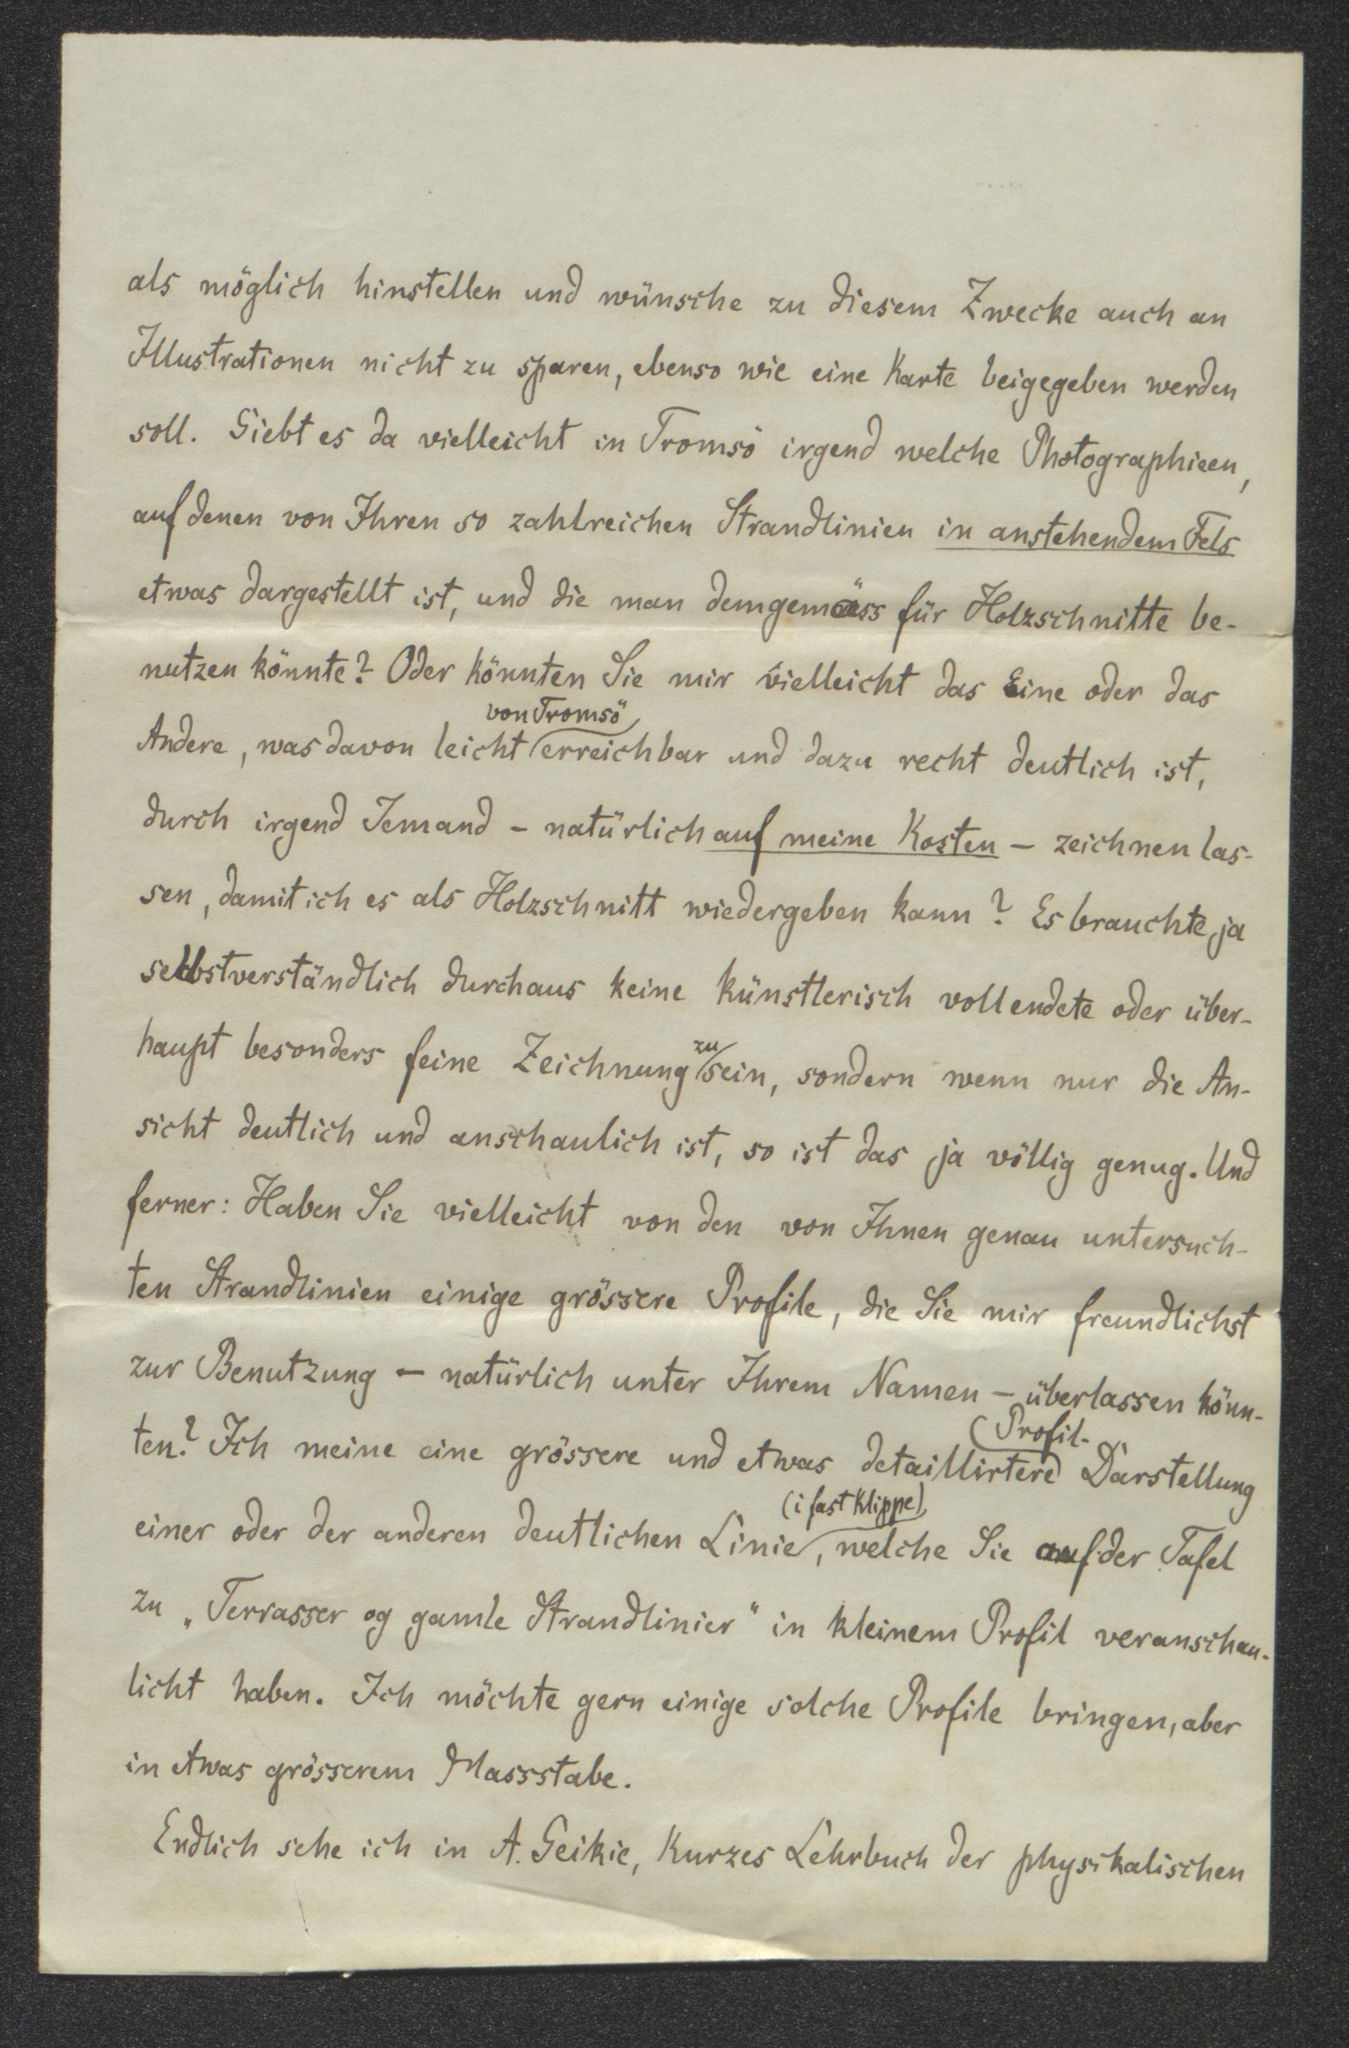 als möglich hinstellen und wünsche zu diesem Zwecke auch an
Illustrationen nicht zu sparen, ebenso wie eine Karte beigegeben werden
soll. Giebt es da vielleicht in Tromsö irgend welche Photographieen,
auf denen von Ihren so zahlreichen Strandlinien in anstehendem Fels
etwas dargestellt ist, und die man demgemäss für Holzschnitte be-
nutzen könnte? Oder könnten Sie mir vielleicht das Eine oder das
von Tromsö
Andere, was davon leicht erreichbar und dazu recht deutlich ist,
durch irgend Jemand - natürlich auf meine Kosten - zeichnen las-
sen, damit ich es als Holzschnitt wiedergeben kann? Es brauchte ja
selbstverständlich durchaus keine künstlerisch vollendete oder über-
zu
haupt besonders feine Zeichnung sein, sondern wenn nur die An-
sicht deutlich und anschaulich ist, so ist das ja völlig genug. Und
ferner: Haben Sie vielleicht von den von Ihnen genau untersuch-
ten Strandlinien einige grössere Profile, die Sie mir freundlichst
zur Benutzung - natürlich unter Ihrem Namen - überlassen könn-
Profil-
ten? Ich meine eine grössere und etwas detaillirtere Darstellung
(i fast Klippe)
einer oder der anderen deutlichen Linie, welche Sie auf der Tafel
zu „Terrasser og gamle Strandlinier" in kleinem Profil veranschau-
licht haben. Ich möchte gern einige solche Profile bringen, aber
in etwas grösserem Massstabe.
Endlich sehe ich in A. Geikie, Kurzes Lehrbuch der physikalischen